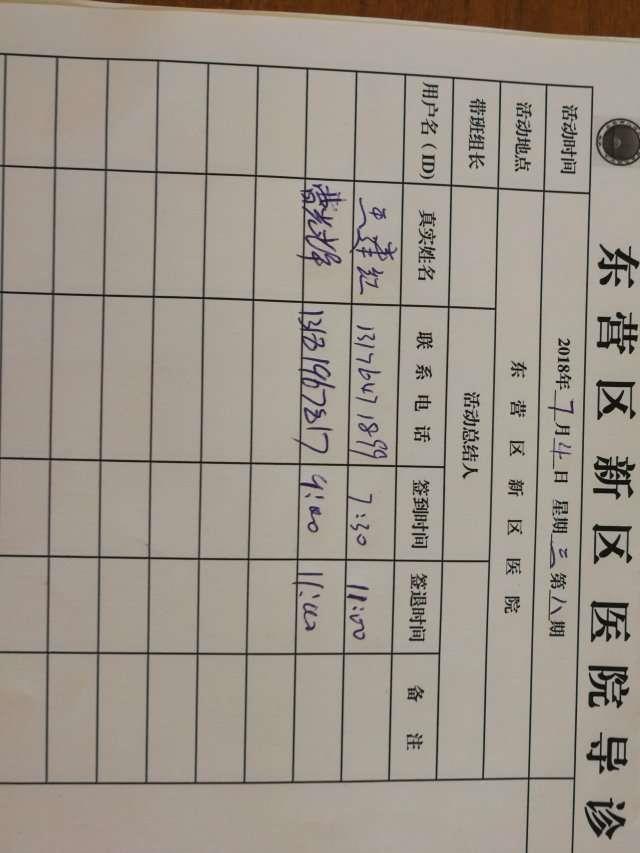 东营区新区医院导诊
活动时间 2018年7月4日 星期三第八期
活动地点 东营区新区医院
带班组长 活动总结人
用户名（ID） 真实姓名 联系电话 签到时间 签退时间 备注
13176471899 7:30 11:00
9:00 11:00